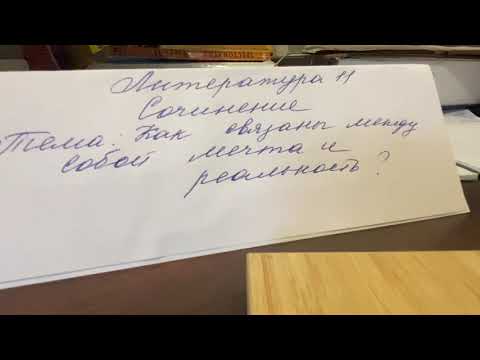 Литература 11
Сочинение
Тема: Как связаны между
собой мечта и
реальность?